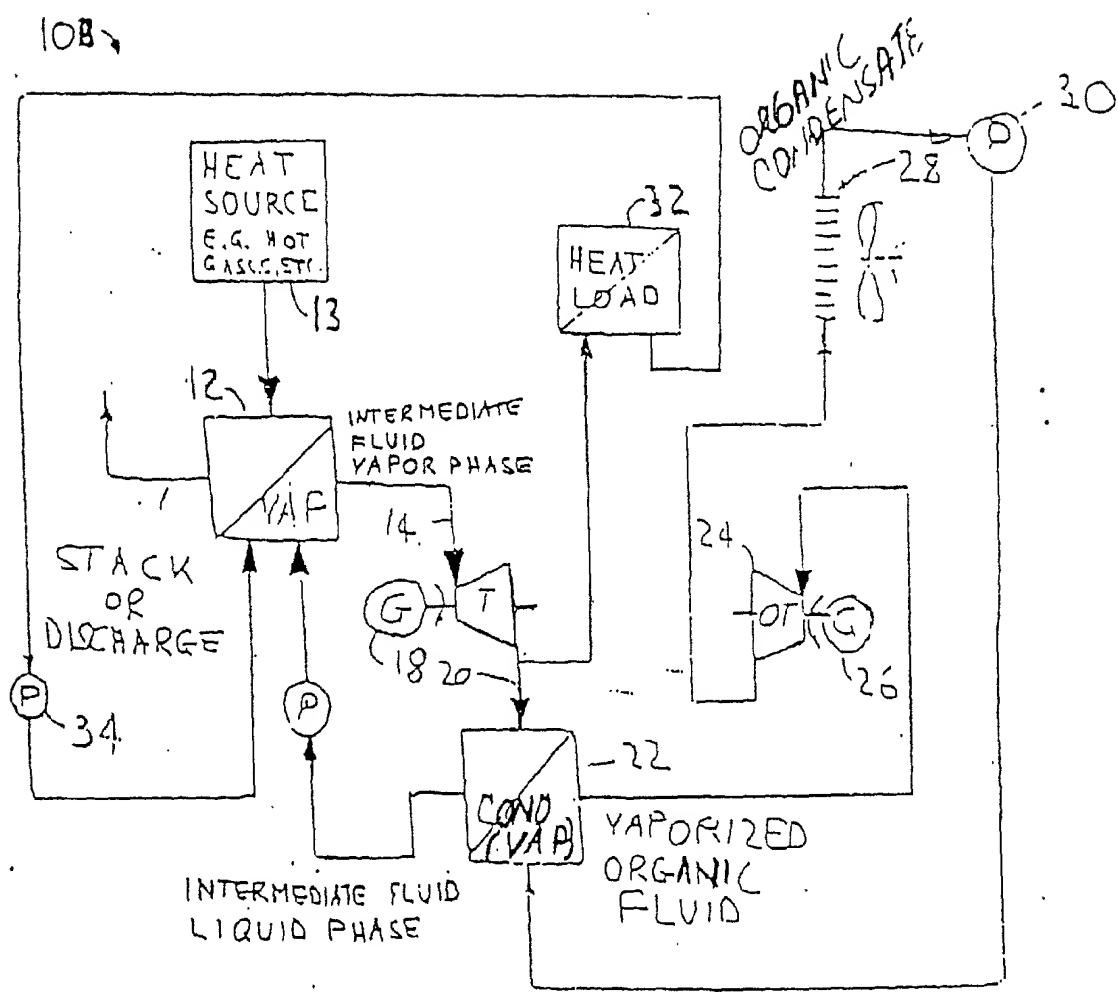 10B
ORGANIC
CONDENSATE
30
P
28
HEAT
SOURCE
E.G. HOT
GASES, ETC.
13
32
HEAT
LOAD
12
VAP
INTERMEDIATE
FLUID
VAPOR PHASE
14
STACK
OR
DISCHARGE
G
T
18
20
24
OT
G
26
P
34
P
22
COND
(VAP)
VAPORIZED
ORGANIC
FLUID
INTERMEDIATE FLUID
LIQUID PHASE